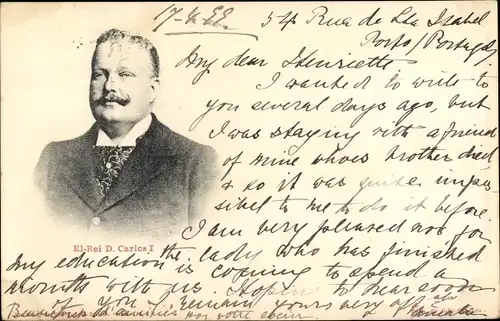 54 Rua de Sta Isabel
Porto/Portugal
My dear Henriette
I wanted to write to
you several days ago, but
I was staying with a friend
of mine whoes brother died
& so it was quite impos
sibel to me to do it before.
I am very pleased now for
the lady who has finished
my education is coming to spend a
month with us. Hopin to hear soon
of you I remain yours very
El-Rei D. Carlos I